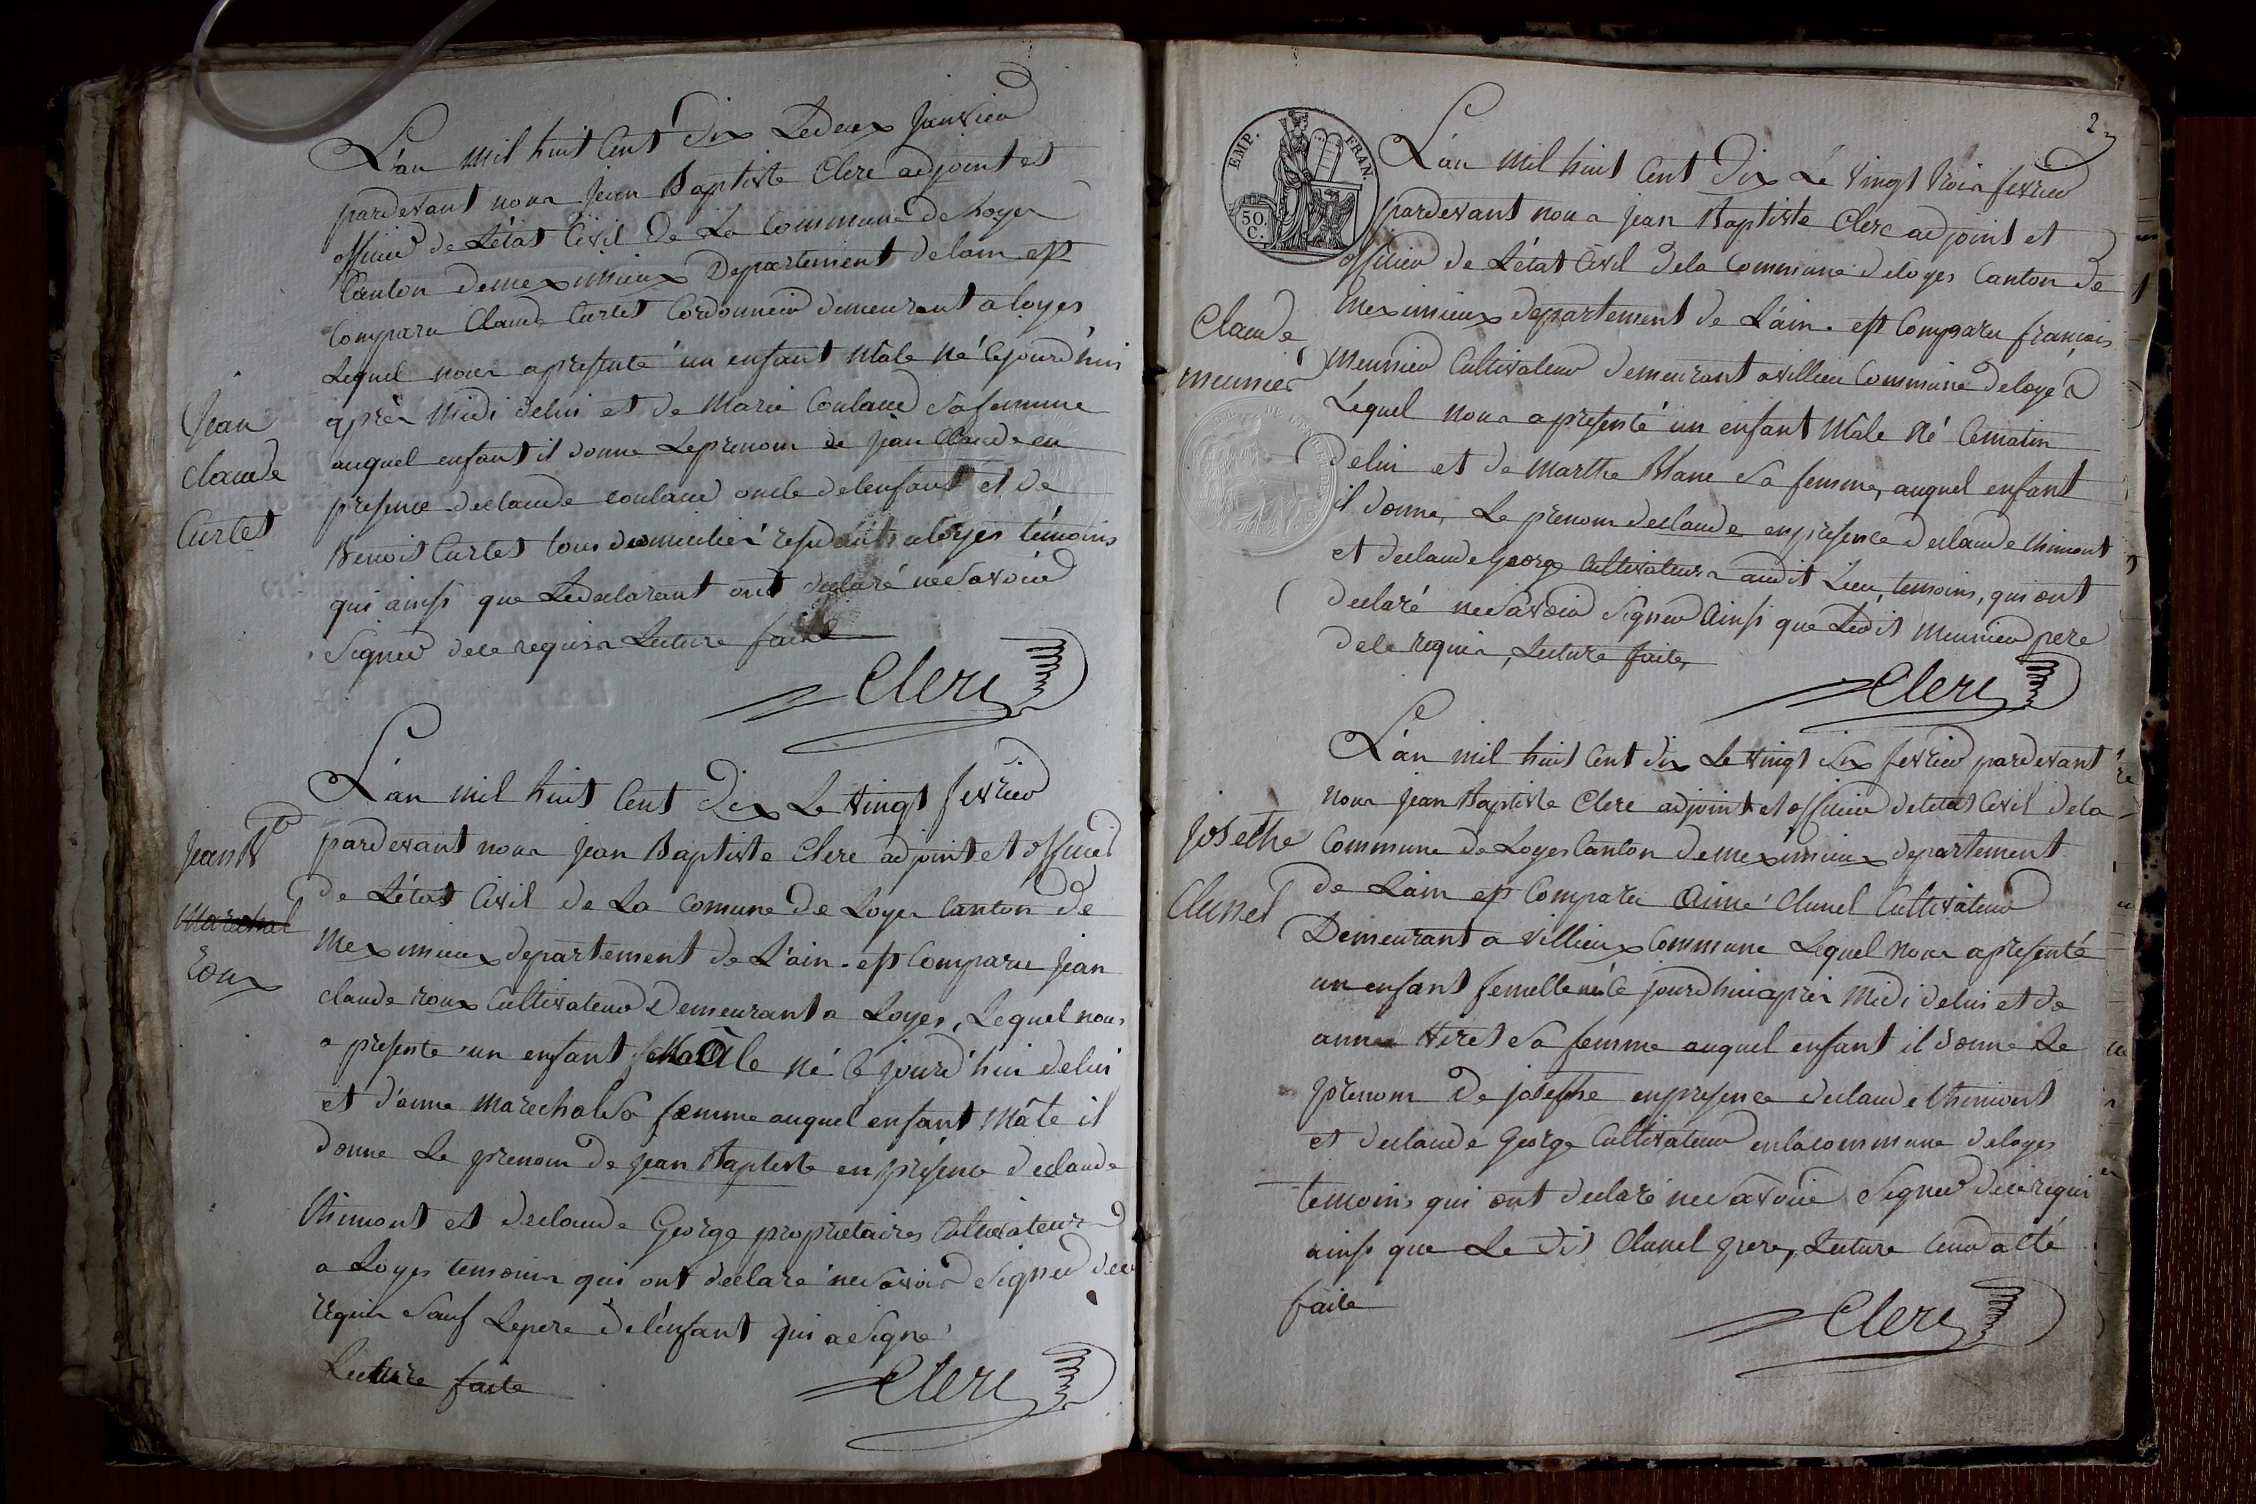 L'an mil huit Cent Dix Le deux Janvier
pardevant nous Jean Baptiste Clerc adjoint et
officier de L'état Civil De La Commune de Loyes
Canton de meximieux Departement de lain est
Comparu Claude Curtet Cordonnier demeurant a loyes
Lequel nous a presenté un enfant Mâle né cejourd'hui
après Midi delui et de Marie Coulaud sa femme
auquel enfant il donne Le prenom de jean Claude en
presence declaude coulaud oncle delenfant et de
Benoit Curtet tous domicilié residants a loyes témoins
qui ainsi que Ledeclarant ont declaré ne Savoir
Signer dece requis Lecture faite
Clerc
Jean
claude
Curtet
L'an mil huit Cent Dix Le Vingt fevrier
pardevant nous Jean Baptiste Clerc adjoint et officier
de L'état Civil de La Comune de Loyes Canton de
Meximieux departement de L'ain. est Comparu Jean
claude roux Cultivateur Demeurant a Loyes, Lequel nous
a presente un enfant Mâle né ce jourd'hui delui
et d'anne marechal Sa femme auquel enfant Mâle il
donne Le prenom de Jean Baptiste en présence declaude
thimont et declaude George proprietaires Cultivateurs
a Loyes temoins qui ont declaré ne Savoir Signer dece
requis Sauf Lepere de l'enfant qui a Signé
Lecture faite
Clerc
Jean Bte
Marechal
roux
2
EMP. FRAN.
50.
C.
L'an Mil huit Cent Dix Le Vingt trois fevrier
pardevant nous Jean Baptiste Clerc adjoint et
officier de L'état Civil dela Commune deloyes Canton de
Meximieux departement de L'ain. est Comparu françois
Meunier Cultivateur demeurant a villieu Commune deloyes
Lequel nous a presenté un enfant Mâle Né Cematin
delui et de Marthe Blanc Sa femme, auquel enfant
il donne, Le prenom declaude en presence declaude thimont
et declaude George Cultivateurs audit Lieu, temoins, qui ont
declaré ne Savoir Signer Ainsi que Ledit Meunier pere
dece requis, Lecture faite,
Clerc
Claude
meunier
L'an mil huit Cent dix Le Vingt six fevrier pardevant
nous Jean Baptiste Clerc adjoint et officier deletat Civil dela
Commune de Loyes Canton de meximieux departement
de Lain est Comparu Aimé Clunel Cultivateur
Demeurant a villieux Commune Lequel nous a presenté
un enfant femelle né ce jourd'hui après Midi delui et de
anne Viret Sa femme auquel enfant il donne Le
prenom De josethe enpresence declaude thimont
et declaude George Cultivateur en la commune deloyes
temoins qui ont declaré ne Savoir Signer dece requis
ainsi que Le dit Clunel pere, Lecture dud acte
faite
Clerc
josethe
Clunel